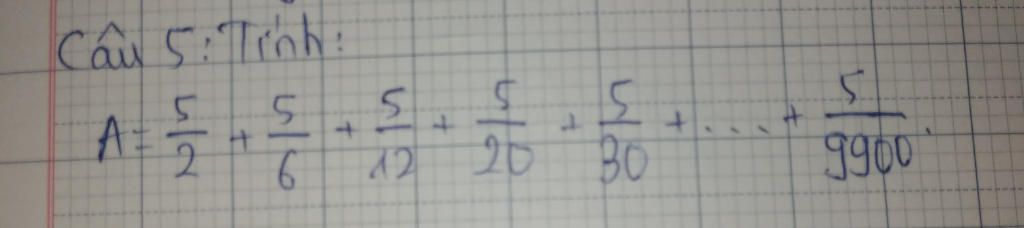 Câu 5: Tính:
A = 5/2 + 5/6 + 5/12 + 5/20 + 5/30 + ... + 5/9900.